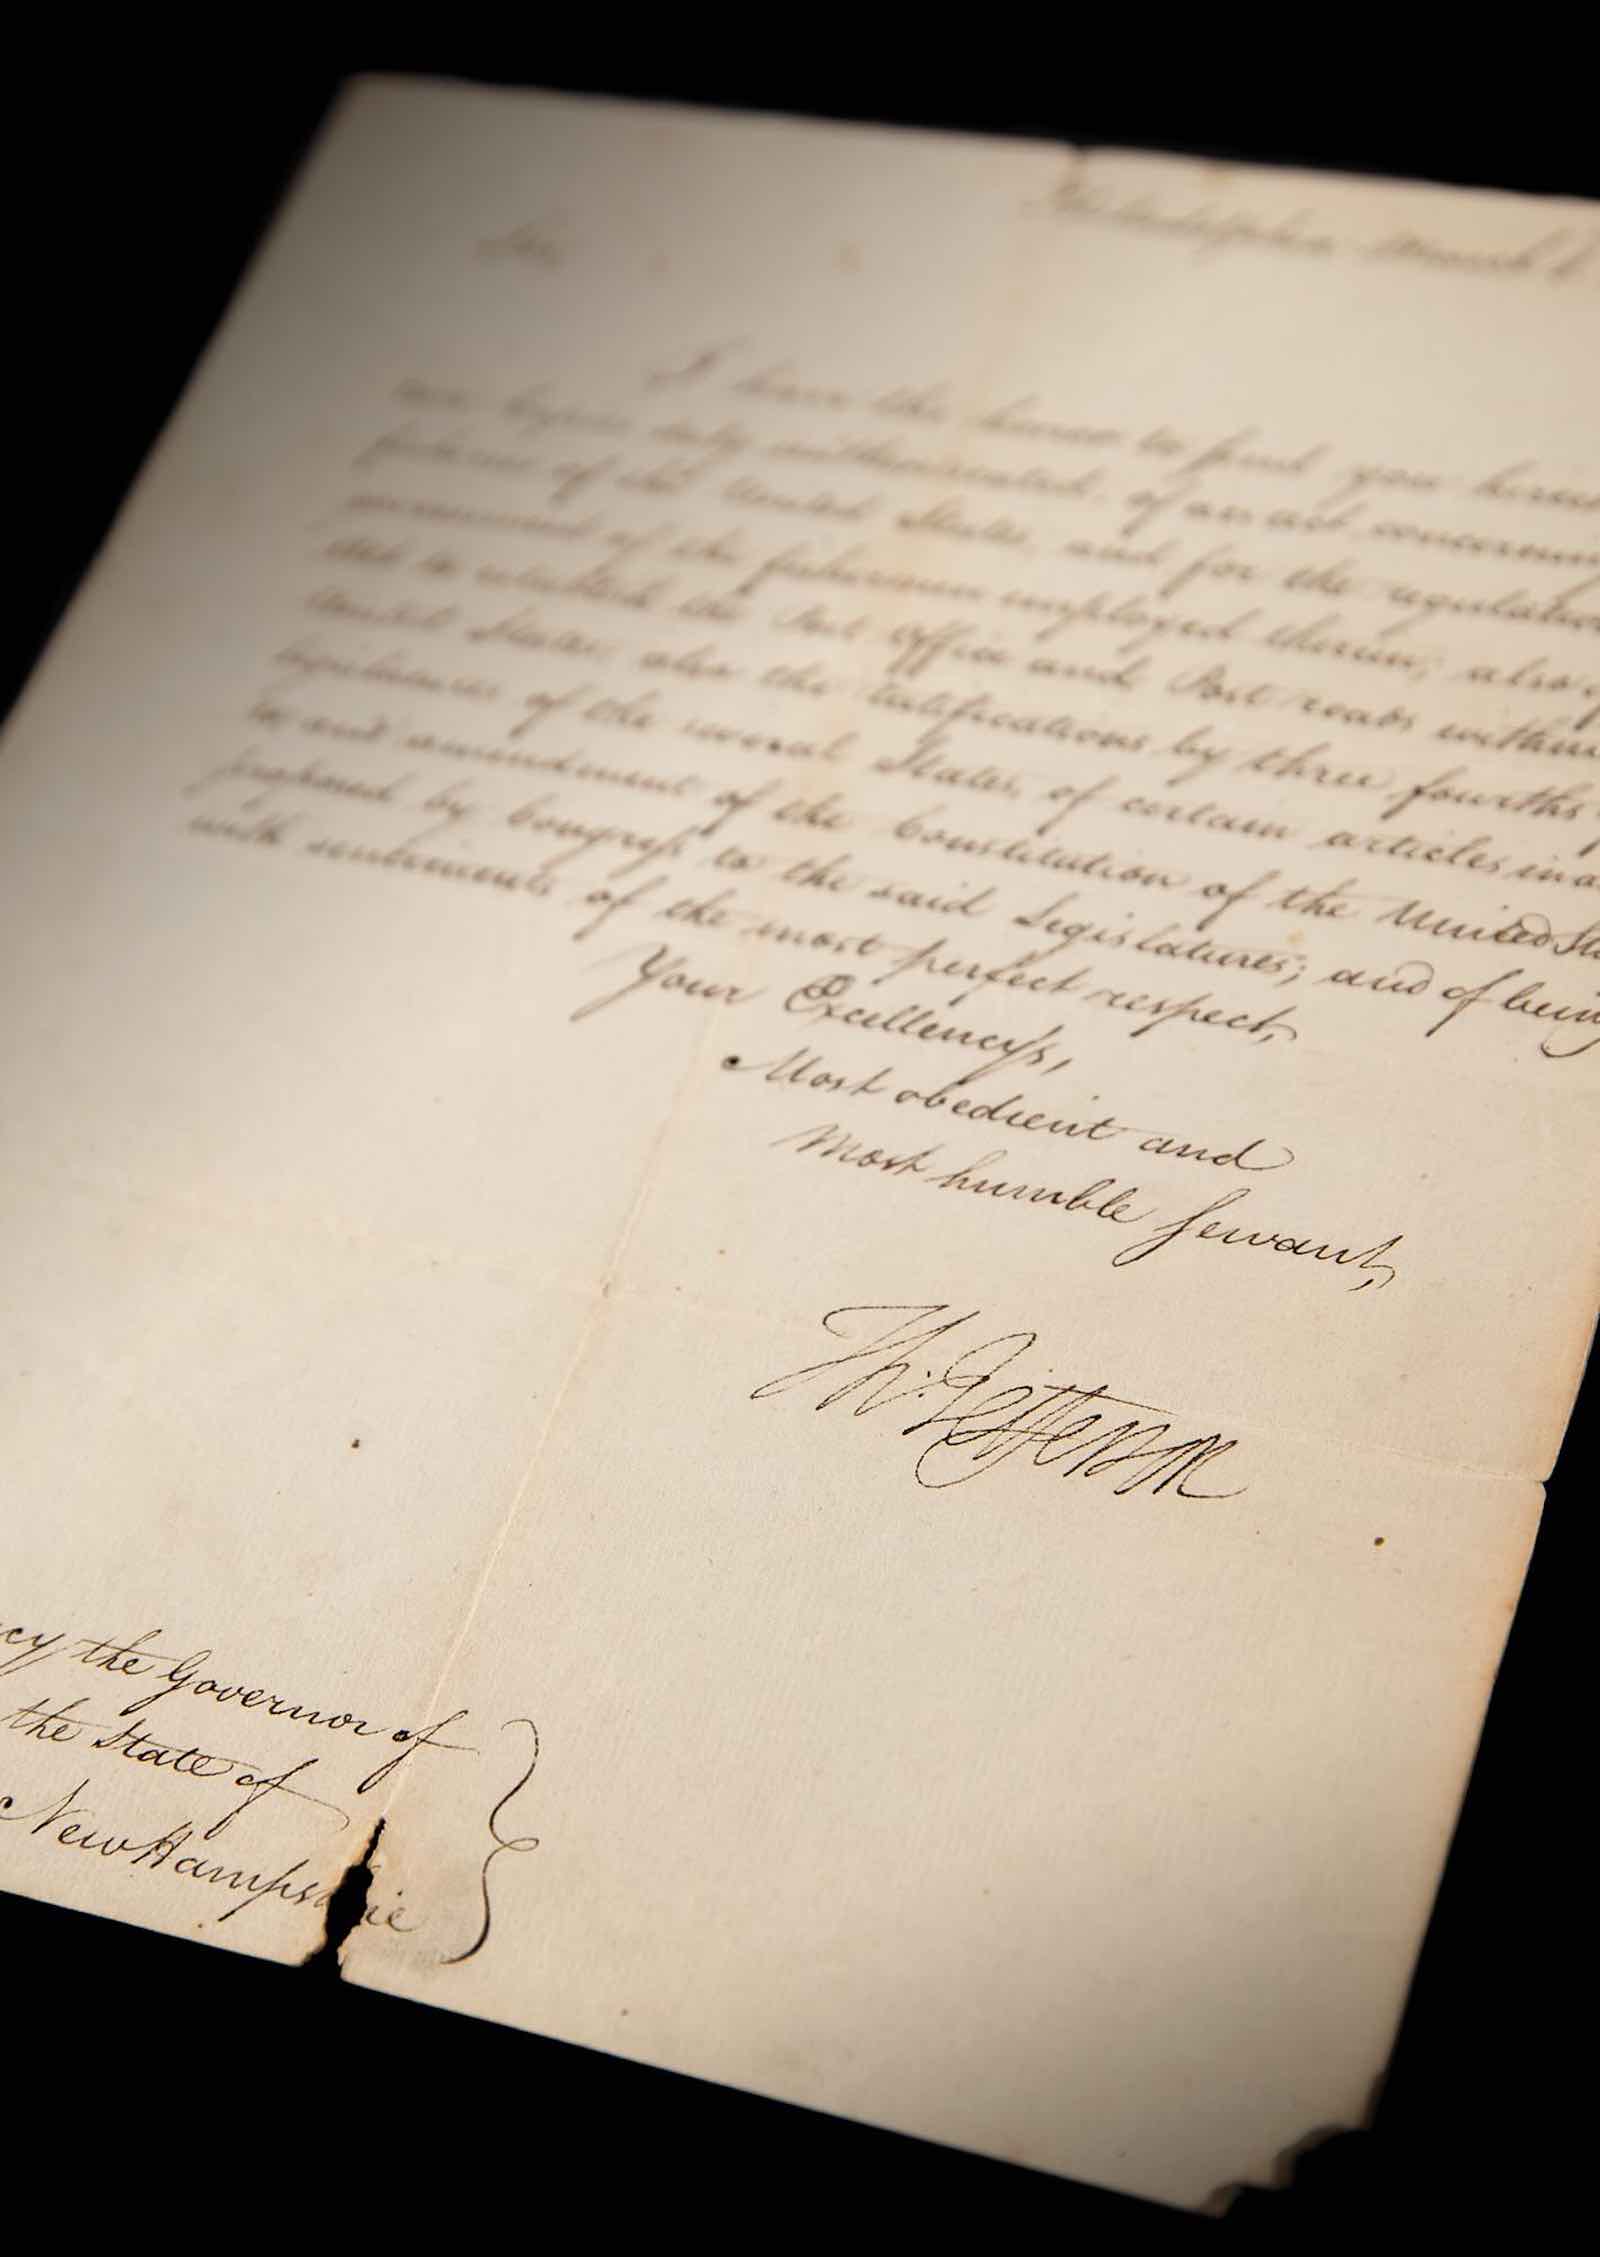 Philadelphia March
Sir
I have the honor to send you herein
two copies duly authenticated, of an act concerning
fisheries of the United States, and for the regulation
government of the fishermen employed therein; also
act to establish the Post Office and Post roads within
United States; also the ratifications by three fourths
legislatures of the several States, of certain articles in
to and amendment of the Constitution of the United
proposed by Congress to the said Legislatures; and of being
with sentiments of the most perfect respect,
Your Excellency's,
Most obedient and
most humble servant,
Th: Jefferson
the Governor of
the State of
New Hampshire